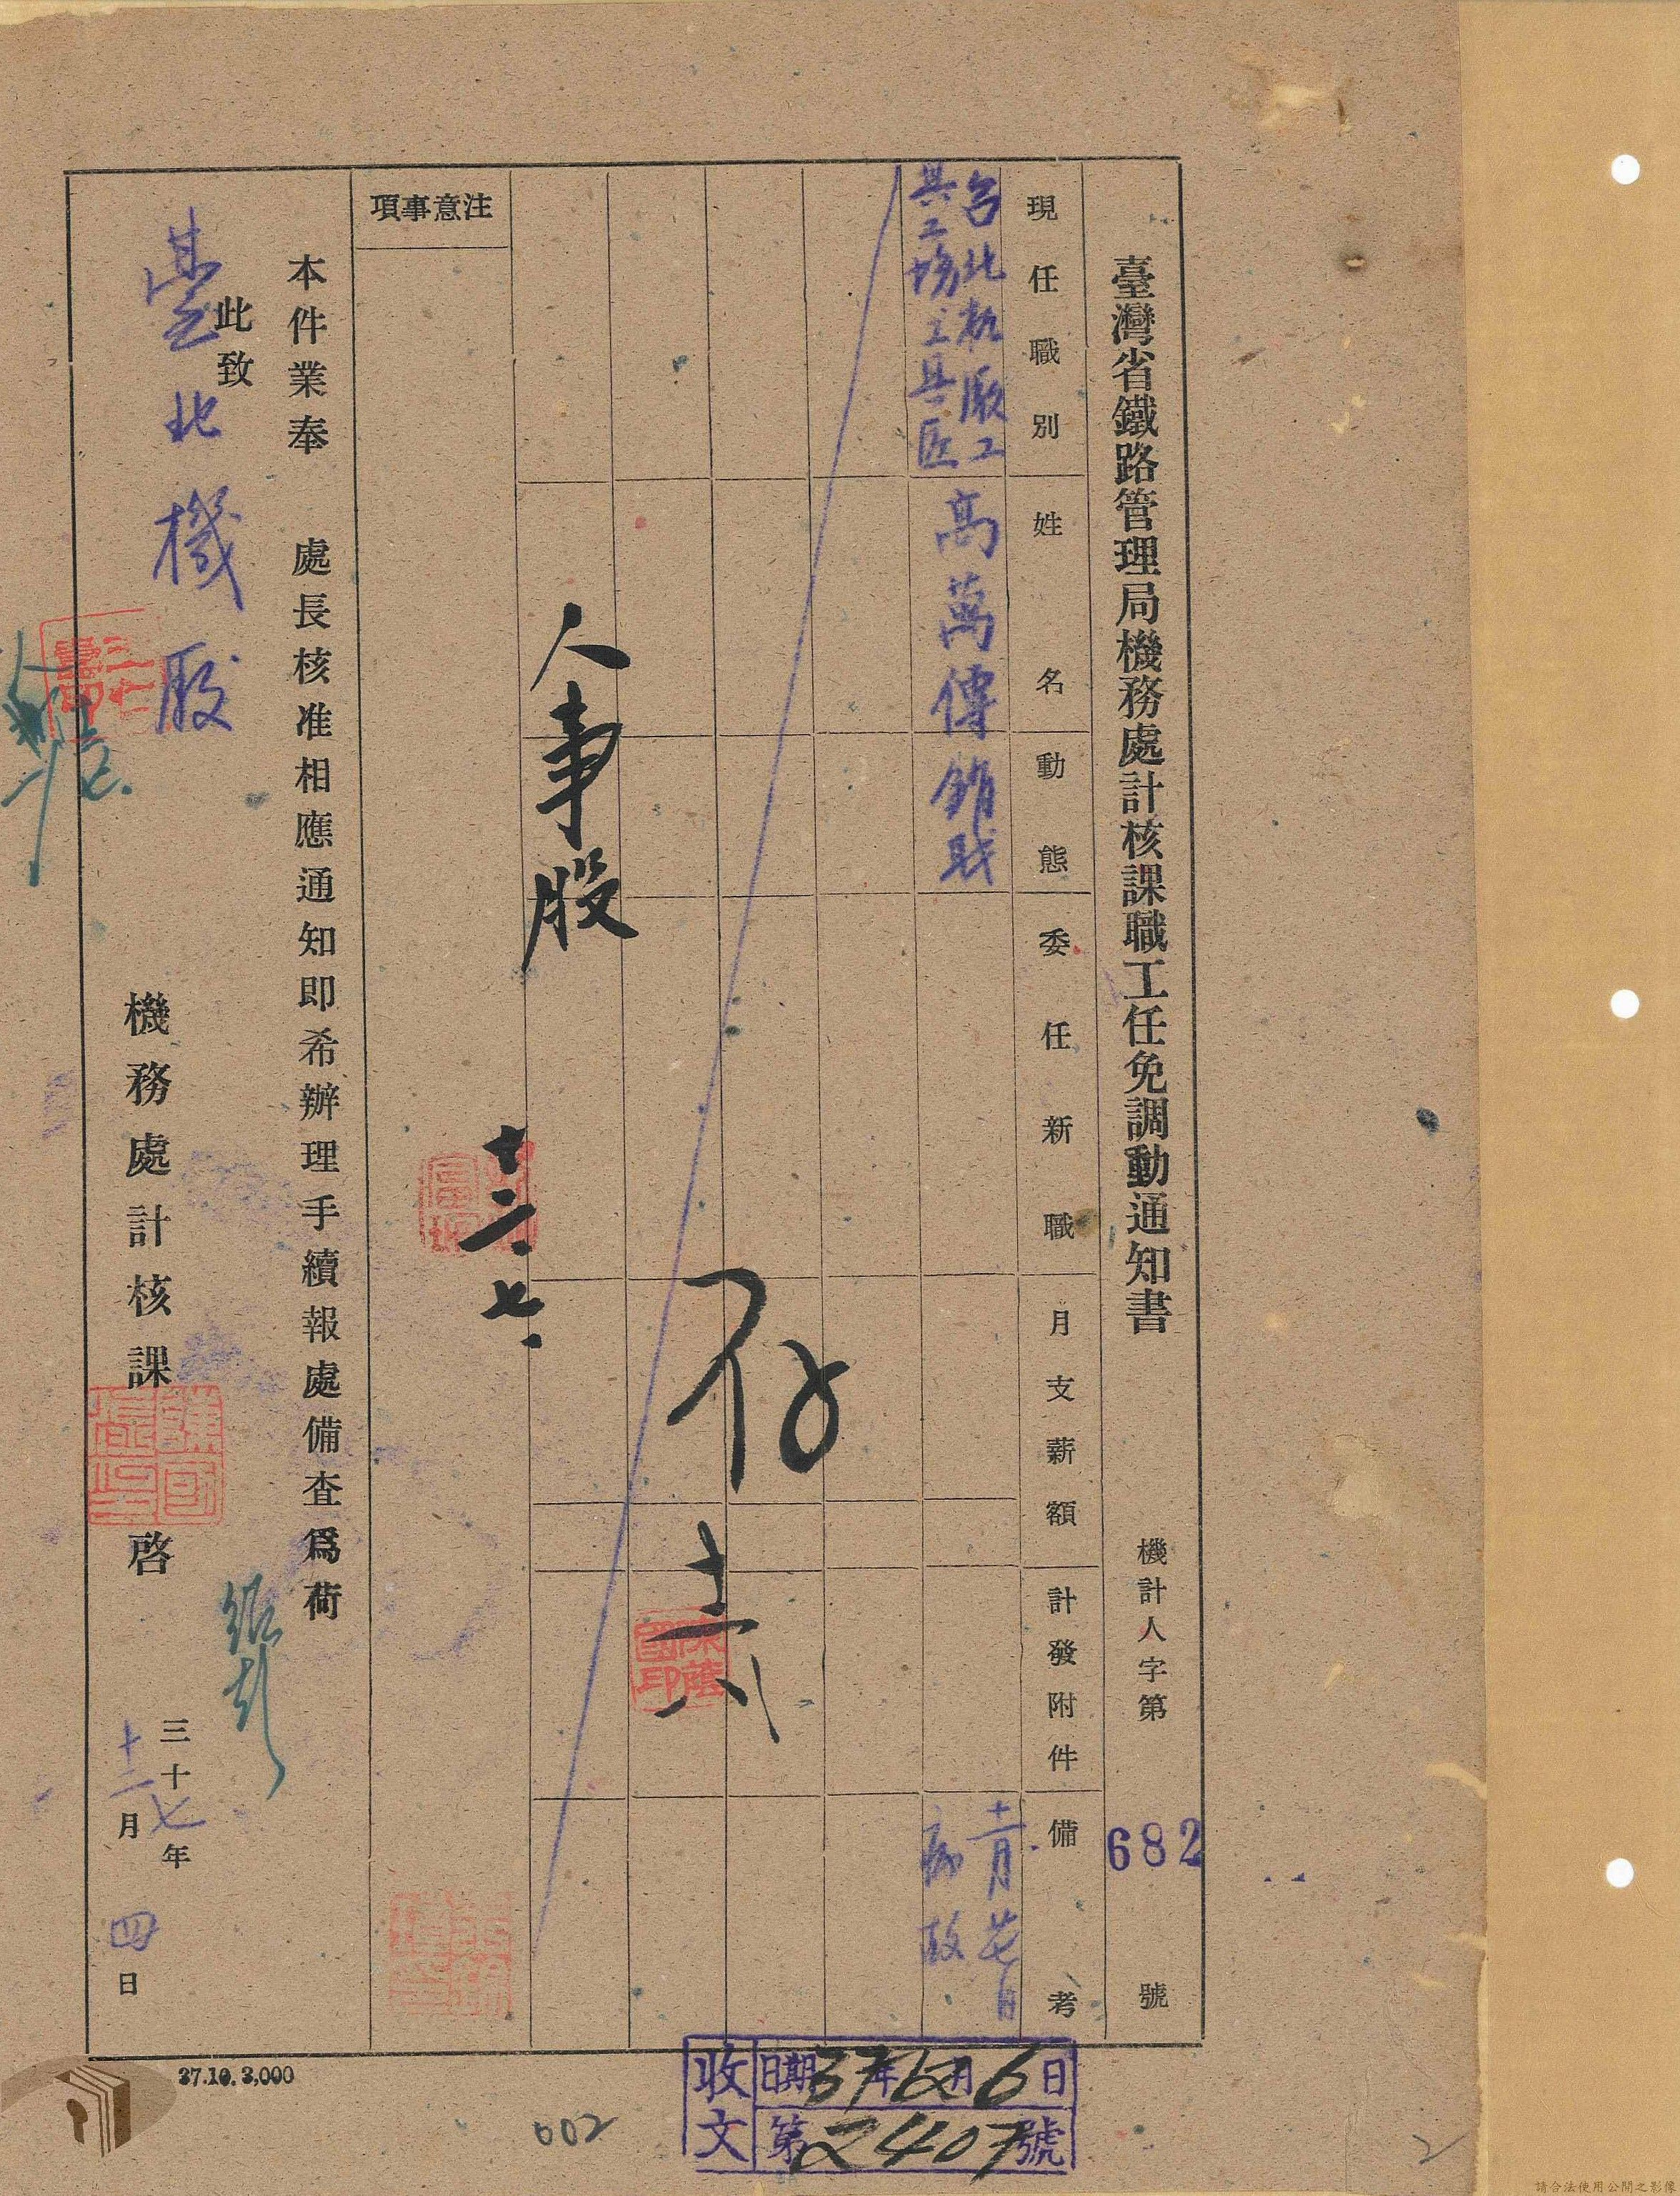 臺灣省鐵路管理局機務處計核課職工任免調動通知書
機計人字第 682 號
現任職別
姓名
動態
委任新職
月支薪額
計發附件
備考
台北机廠工
具工場工具匠
高萬傳
銷職
十一月廿七日
病故
存
十二 八
陳蔭國印
人事股
十二、七、
注意事項
本件業奉 處長核准相應通知即希辦理手續報處備查爲荷
此致
臺北機廠
機務處計核課 啓
三十七年
十二月四日
37.10. 3,000
收文
日期 37年12月6日
第2407號
002
2
請合法使用公開之影像